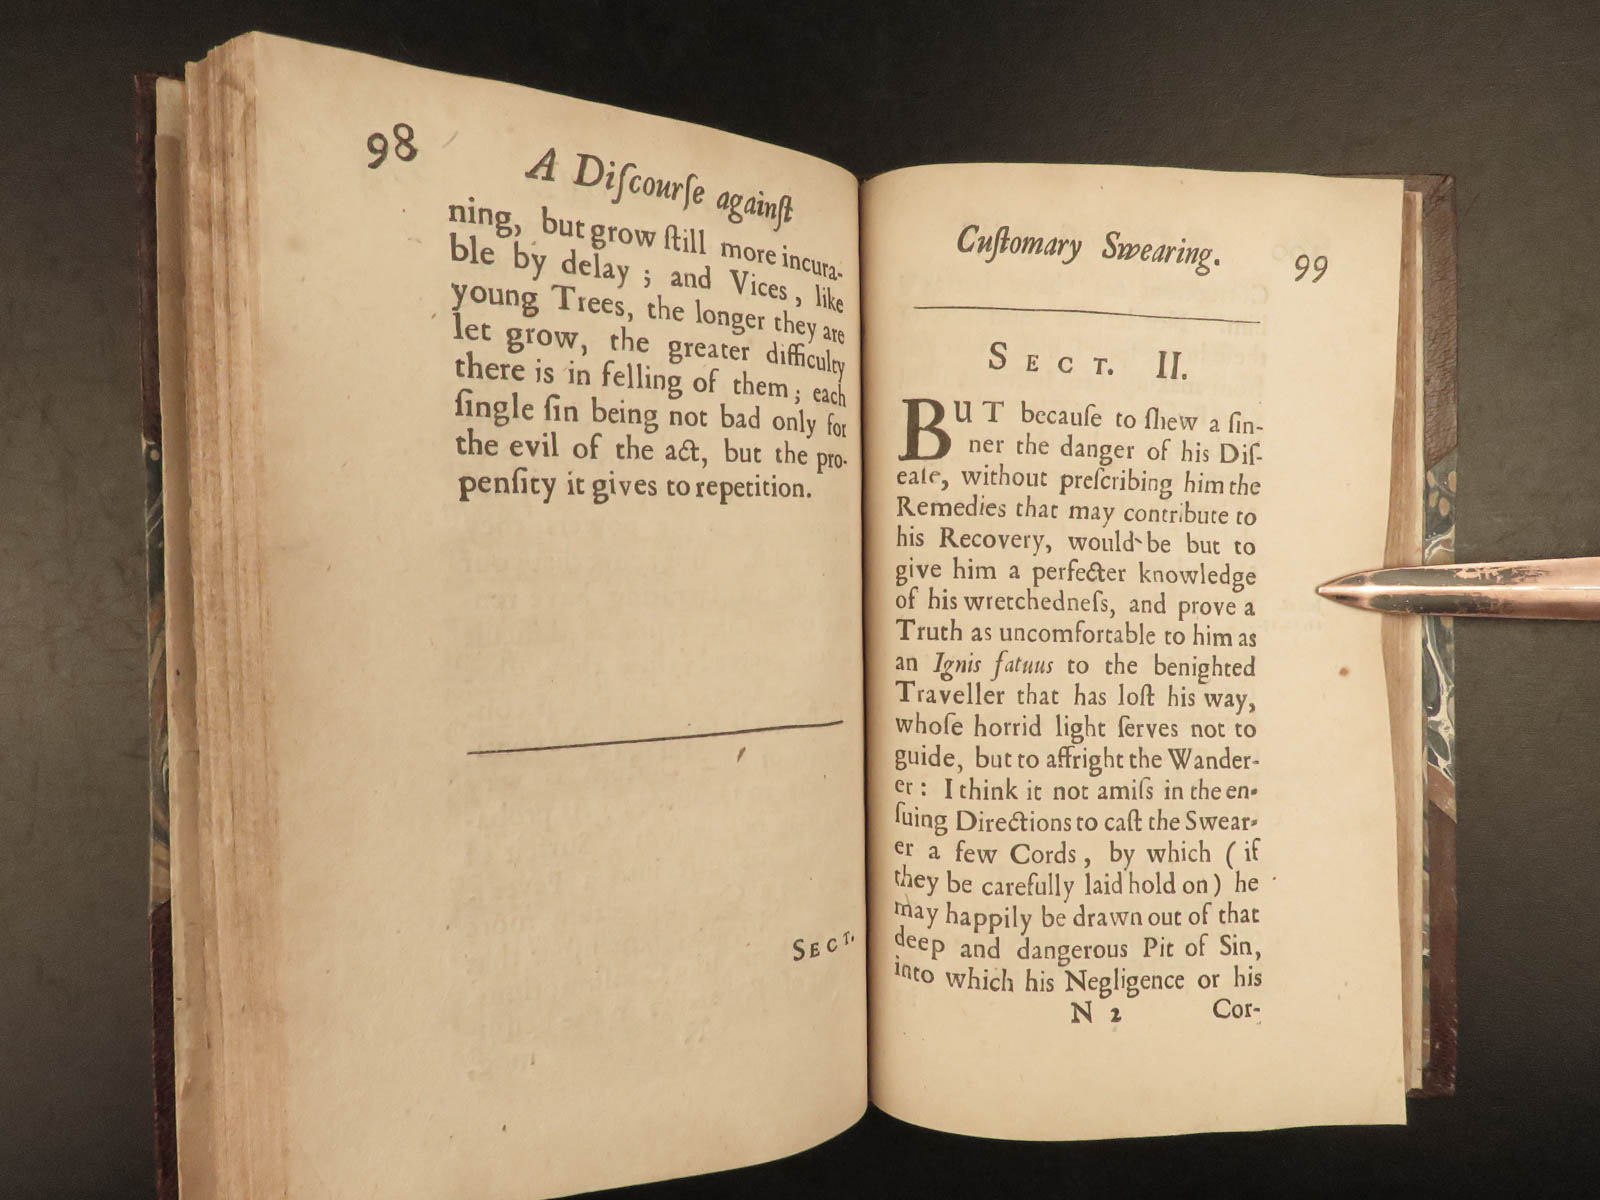 98
A Diſcourſe againſt
ning, but grow ſtill more incura-
ble by delay; and Vices, like
young Trees, the longer they are
let grow, the greater difficulty
there is in felling of them; each
ſingle ſin being not bad only for
the evil of the act, but the pro-
penſity it gives to repetition.
SECT.
Cuſtomary Swearing. 99
SECT. II.
BUT becauſe to ſhew a ſin-
ner the danger of his Diſ-
eaſe, without preſcribing him the
Remedies that may contribute to
his Recovery, would be but to
give him a perfecter knowledge
of his wretchedneſs, and prove a
Truth as uncomfortable to him as
an Ignis fatuus to the benighted
Traveller that has loſt his way,
whoſe horrid light ſerves not to
guide, but to affright the Wander-
er: I think it not amiſs in the en-
ſuing Directions to caſt the Swear-
er a few Cords, by which (if
they be carefully laid hold on) he
may happily be drawn out of that
deep and dangerous Pit of Sin,
into which his Negligence or his
N 2 Cor-